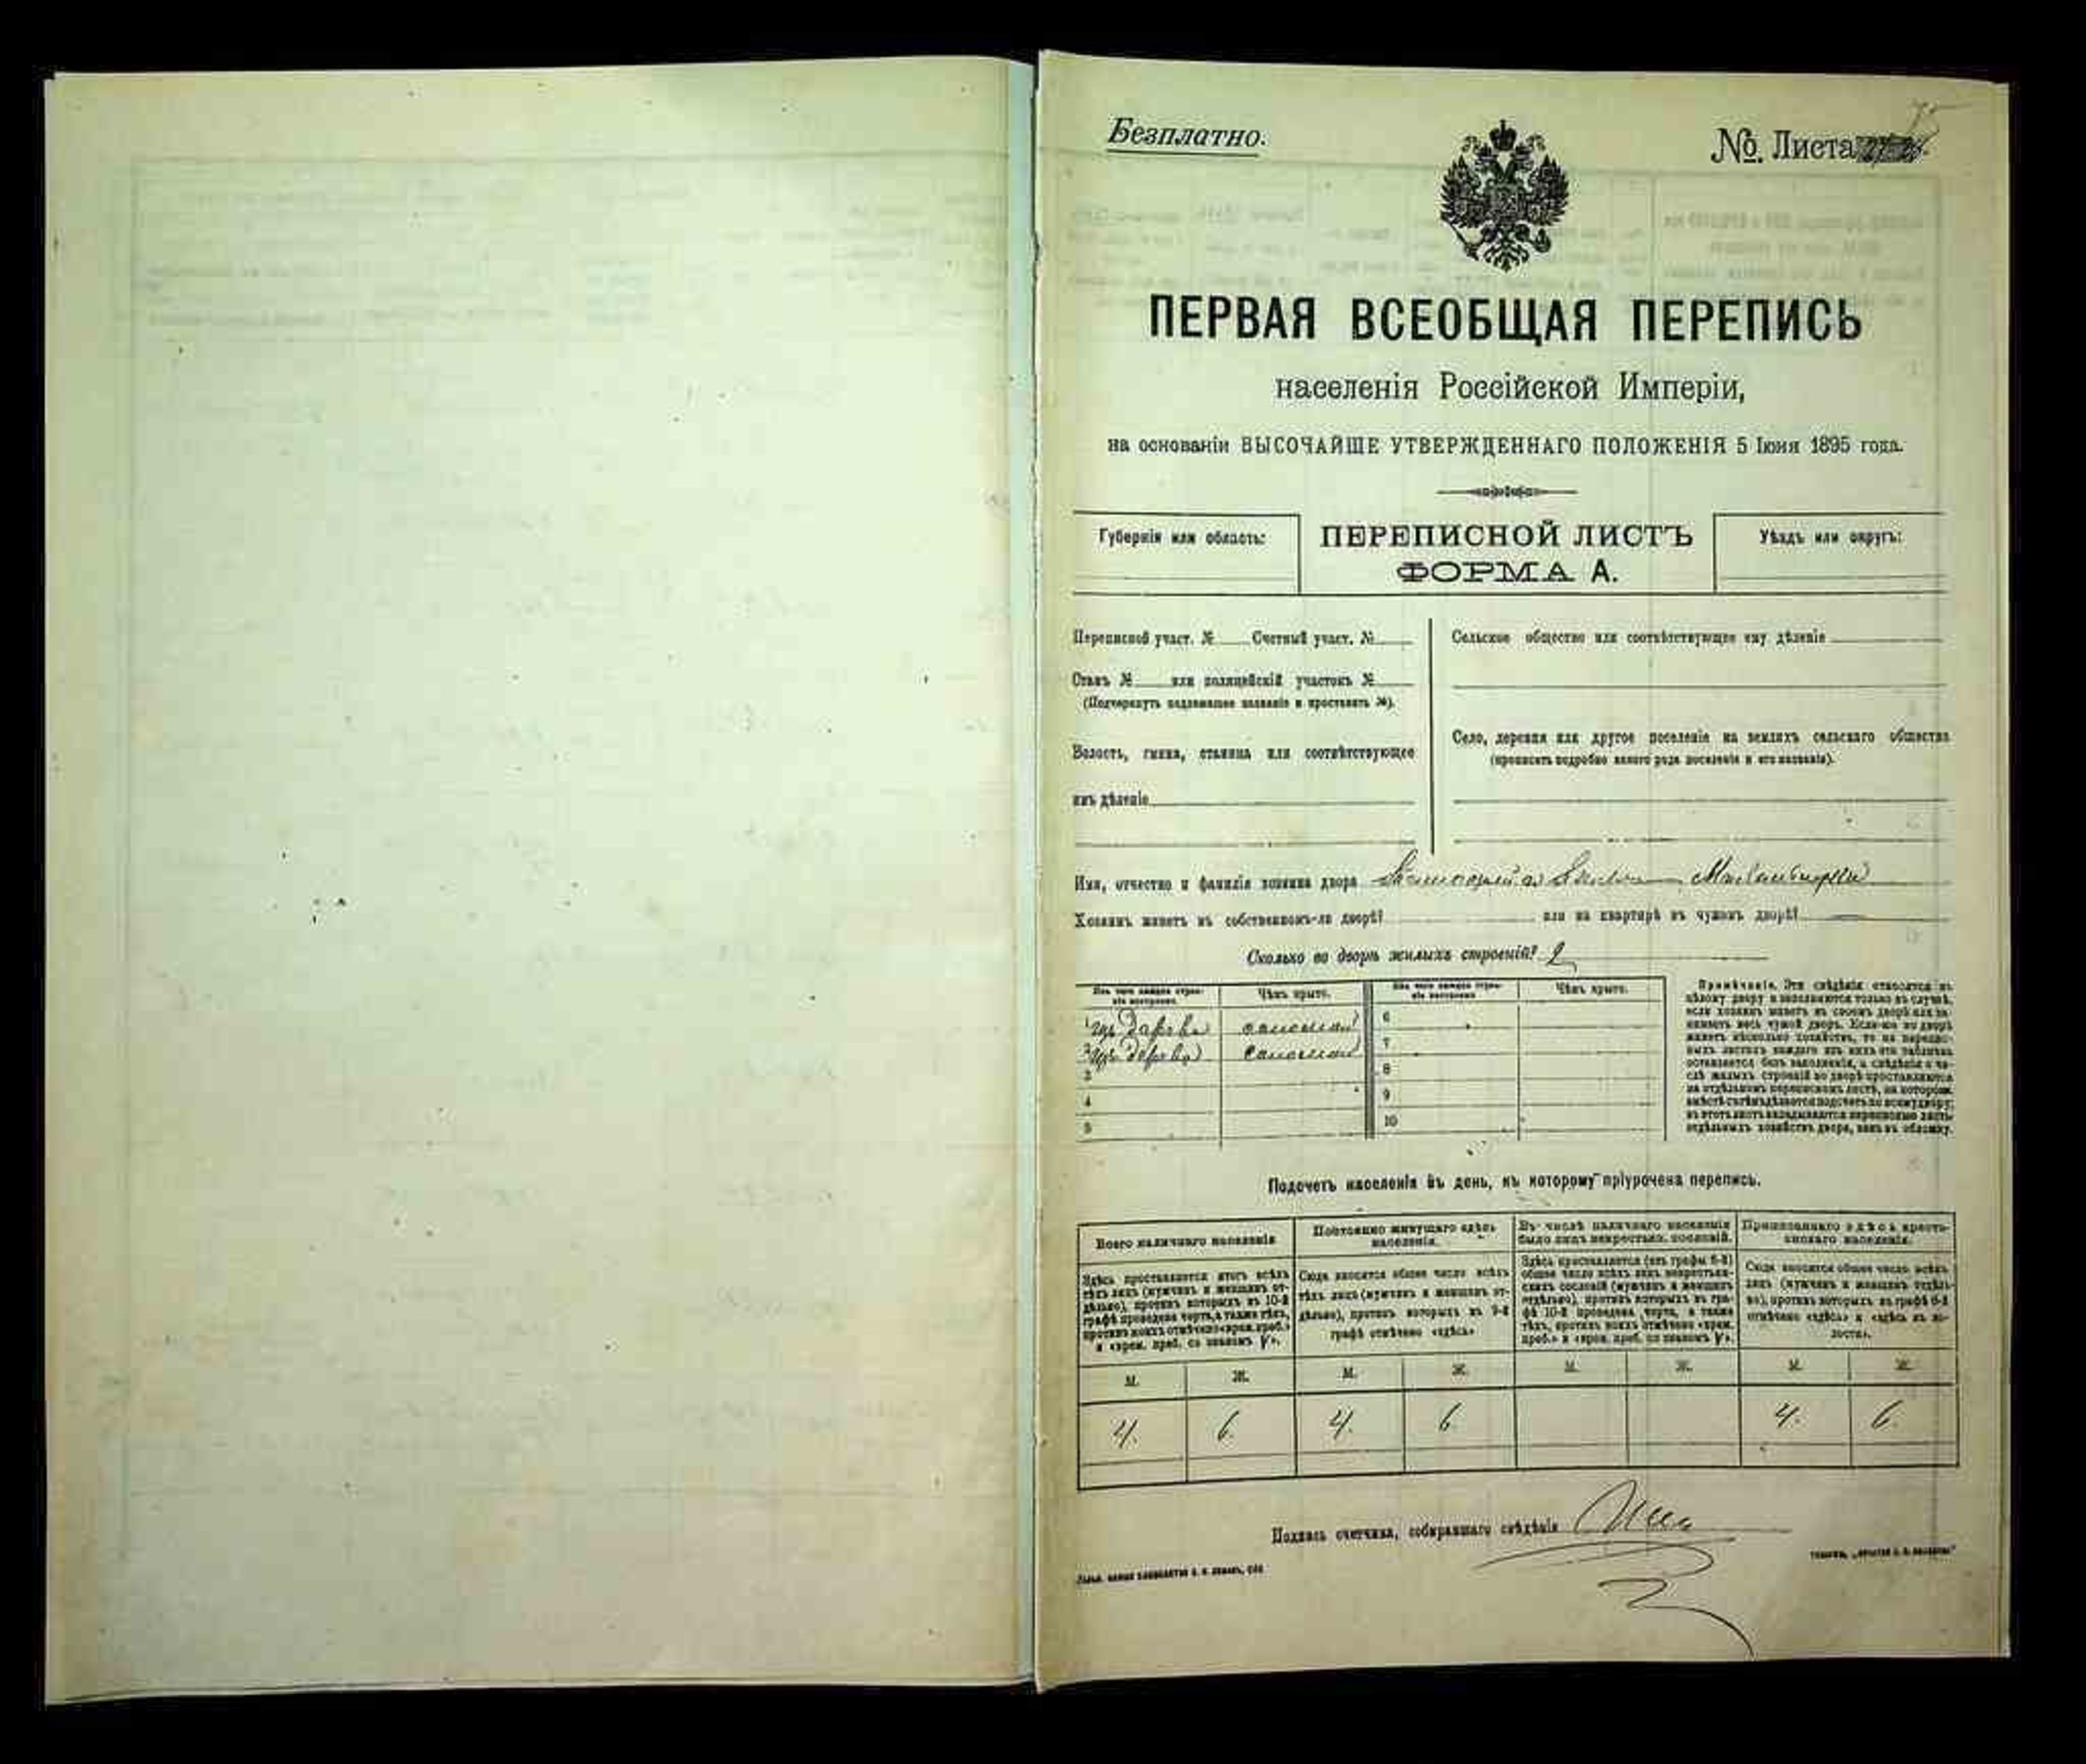 Безплатно.
№. Листа 75
ПЕРВАЯ ВСЕОБЩАЯ ПЕРЕПИСЬ
населенія Россійской Имперіи,
на основаніи ВЫСОЧАЙШЕ УТВЕРЖДЕННАГО ПОЛОЖЕНІЯ 5 Іюня 1895 года.
Губернія или область:
ПЕРЕПИСНОЙ ЛИСТЪ
ФОРМА А.
Уѣздъ или округъ:
Переписной участ. № Счетный участ. №
Станъ № или полицейскій участокъ №
(Подчеркнуть надлежащее названіе и проставить №).
Волость, гмина, станица или соотвѣтствующее
имъ дѣленіе
Сельское общество или соотвѣтствующее ему дѣленіе
Село, деревня или другое поселеніе на земляхъ сельскаго общества
(прописать подробно какого рода поселеніе и его названіе).
Имя, отчество и фамилія хозяина двора
Хозяинъ живетъ въ собственномъ-ли дворѣ? или на квартирѣ въ чужомъ дворѣ?
Сколько во дворѣ жилыхъ строеній? 2
Изъ чего каждое строе-
ніе построено.
Чѣмъ крыто.
Изъ чего каждое строе-
ніе построено.
Чѣмъ крыто.
1 изъ дерева соломой
2 изъ дерева соломой
3
4
5
6
7
8
9
10
Примѣчаніе. Эти свѣдѣнія относятся къ
цѣлому двору и заполняются только въ случаѣ,
если хозяинъ живетъ въ своемъ дворѣ или за-
нимаетъ весь чужой дворъ. Если-же во дворѣ
живетъ нѣсколько хозяйствъ, то на перепис-
ныхъ листахъ каждаго изъ нихъ эта табличка
оставляется безъ заполненія, а свѣдѣнія о чи-
слѣ жилыхъ строеній во дворѣ проставляются
на отдѣльномъ переписномъ листѣ, на которомъ
вмѣстѣ съ тѣмъ дѣлается подсчетъ по всему двору;
въ этотъ листъ вкладываются переписные листы
отдѣльныхъ хозяйствъ двора, какъ въ обложку.
Подсчетъ населенія въ день, къ которому пріурочена перепись.
Всего наличнаго населенія
Здѣсь проставляется итогъ всѣхъ
тѣхъ лицъ (мужчинъ и женщинъ от-
дѣльно), противъ которыхъ въ 10-й
графѣ проведена черта, а также тѣхъ,
противъ коихъ отмѣчено «врем. преб.»
и «врем. преб. со знакомъ V».
Постоянно живущаго здѣсь
населенія.
Сюда вносится общее число всѣхъ
тѣхъ лицъ (мужчинъ и женщинъ от-
дѣльно), противъ которыхъ въ 9-й
графѣ отмѣчено «здѣсь»
Въ числѣ наличнаго населенія
было лицъ некрестьянс. сословій.
Здѣсь проставляется (изъ графы 6-й)
общее число всѣхъ лицъ некрестьян-
скихъ сословій (мужчинъ и женщинъ
отдѣльно), противъ которыхъ въ гра-
фѣ 10-й проведена черта, а также
тѣхъ, противъ коихъ отмѣчено «врем.
преб.» и «врем. преб. со знакомъ V».
Приписаннаго здѣсь кресть-
янскаго населенія.
Сюда вносится общее число всѣхъ
лицъ (мужчинъ и женщинъ отдѣль-
но), противъ которыхъ въ графѣ 8-й
отмѣчено «здѣсь» и «здѣсь въ во-
лости».
М. Ж. М. Ж. М. Ж. М. Ж.
4. 6. 4. 6 4. 6.
Подпись счетчика, собиравшаго свѣдѣнія